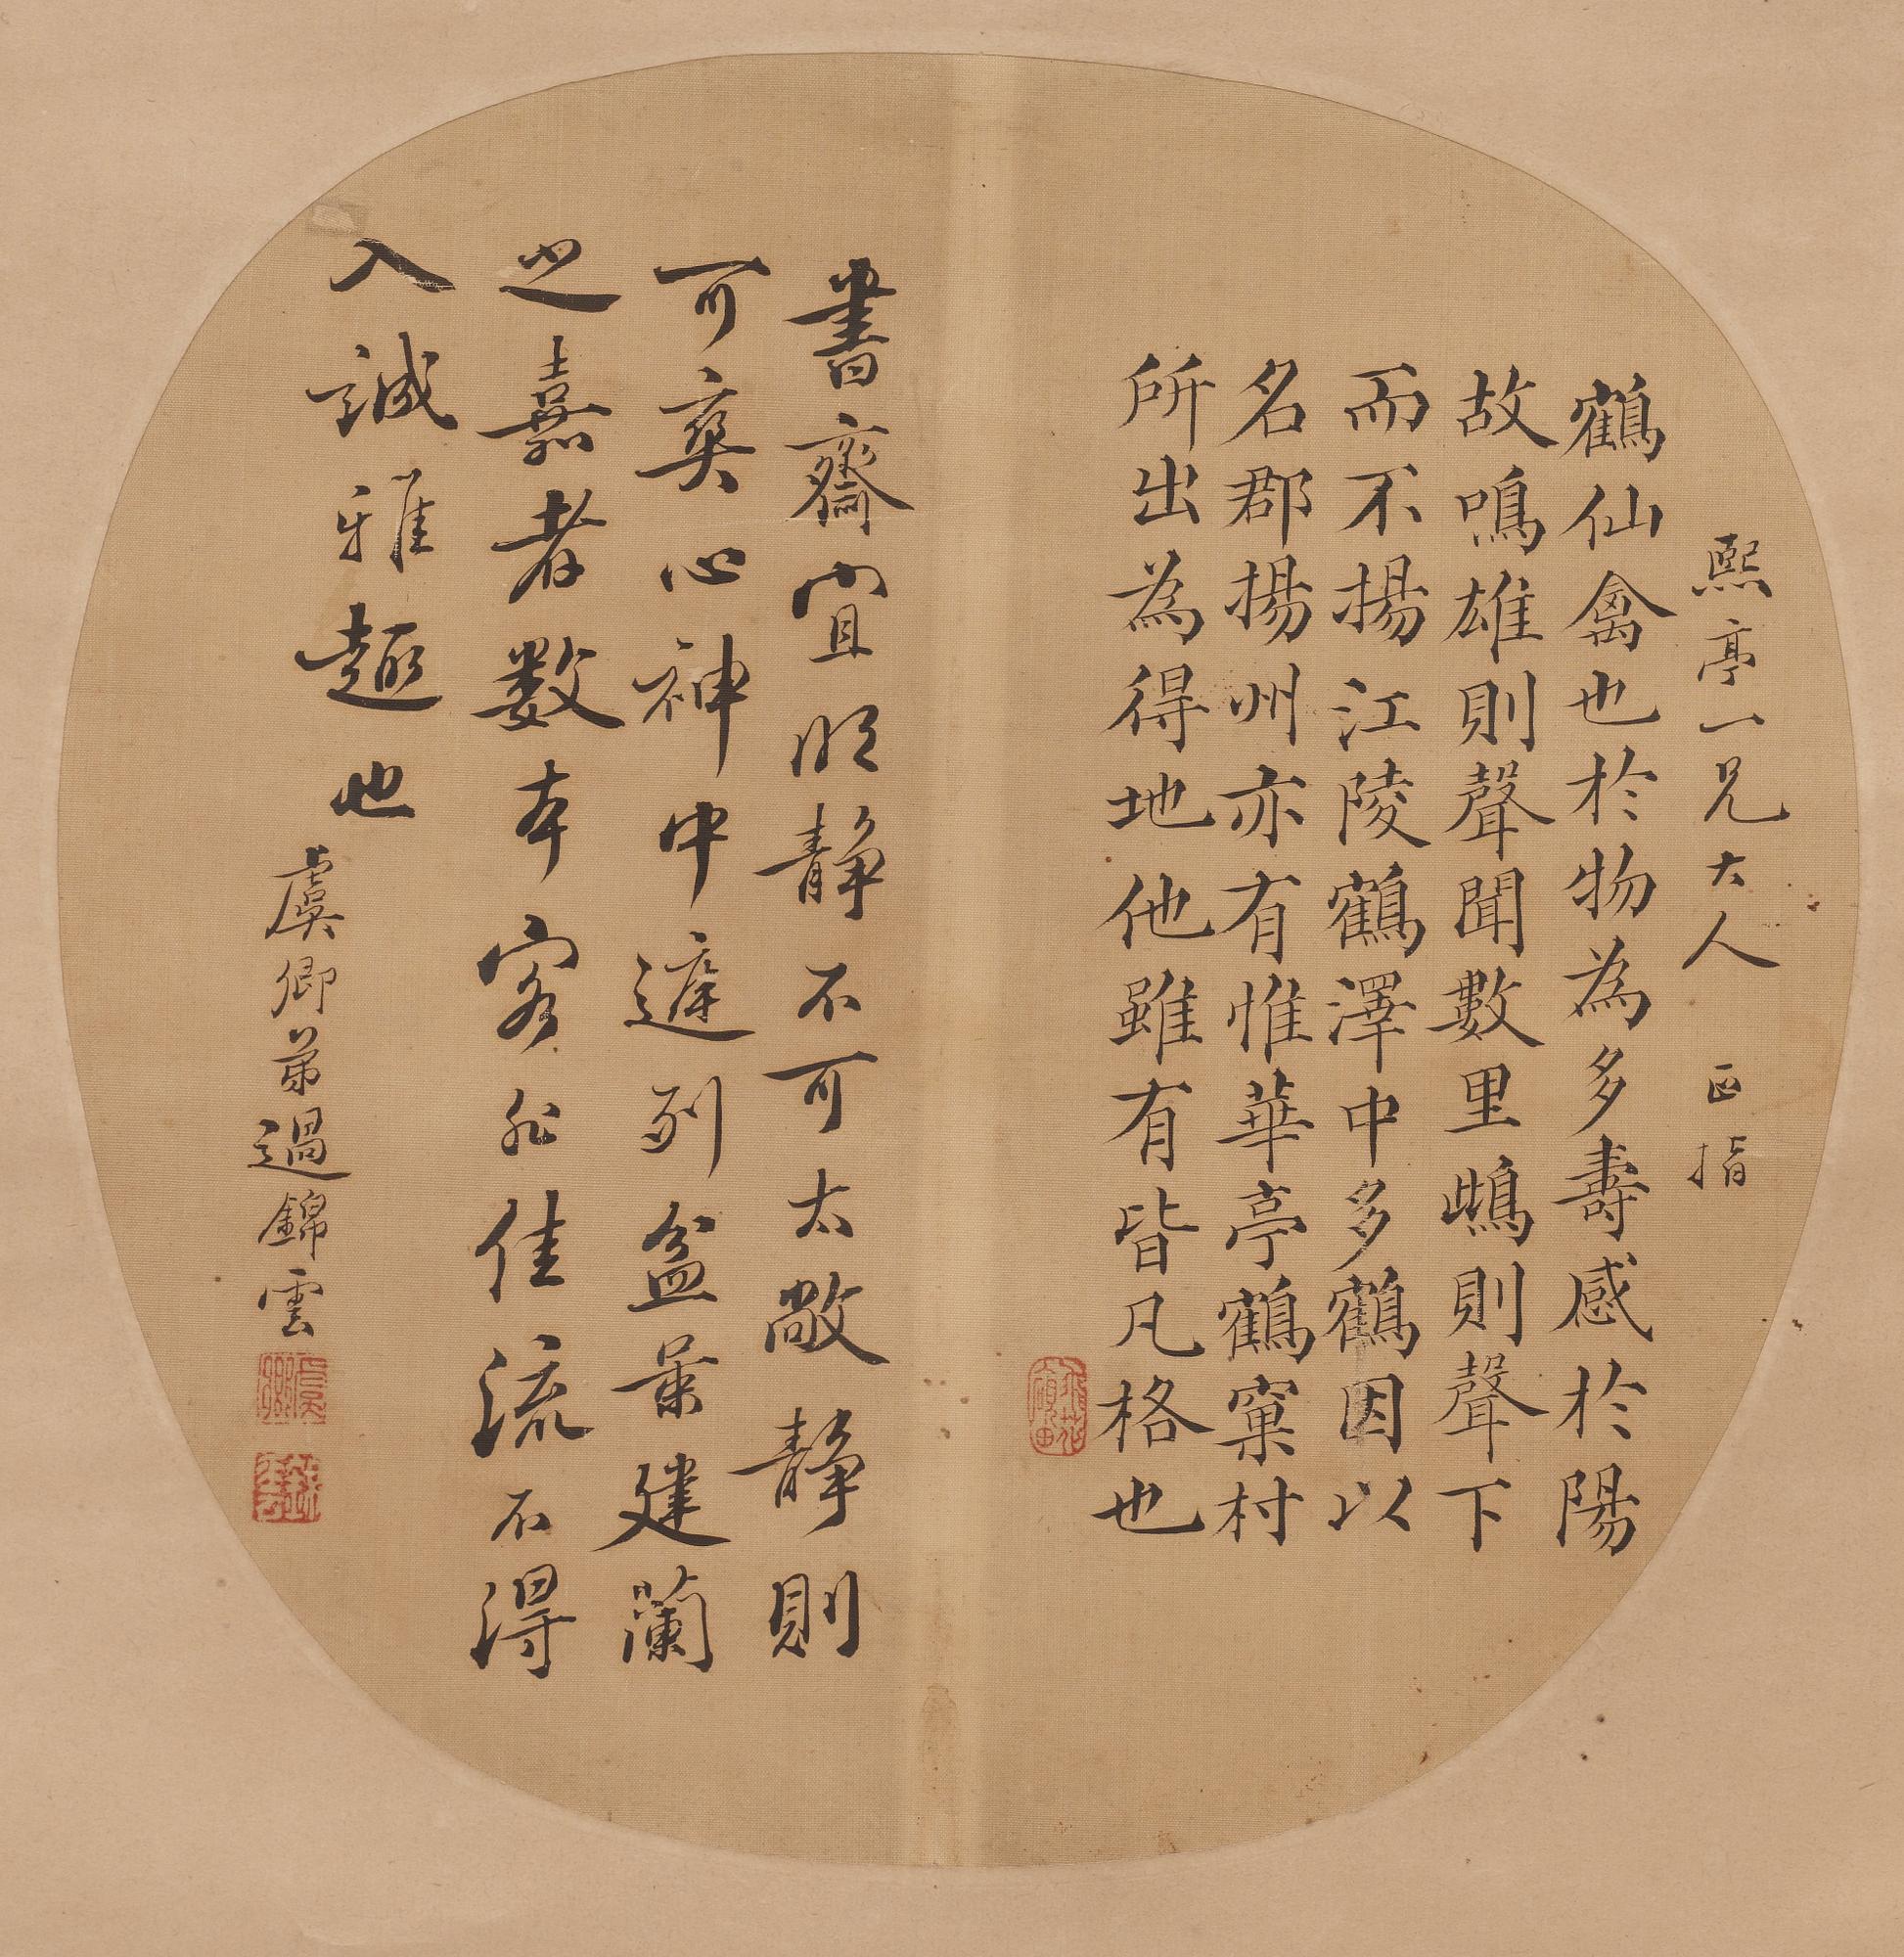 熙亭一兄大人 正指
鶴仙禽也於物為多壽感於陽
故鳴雄則聲聞數里鴜則聲下
而不揚江陵鶴澤中多鶴因以
名郡揚州亦有惟華亭鶴窠村
所出為得地他雖有皆凡格也
書齋宜明靜不可太敞靜則
可爽心神中遮列盆景建蘭
之嘉者數本客非佳流不得
入誠雅趣也
虞卿弟過錦雲
虞卿